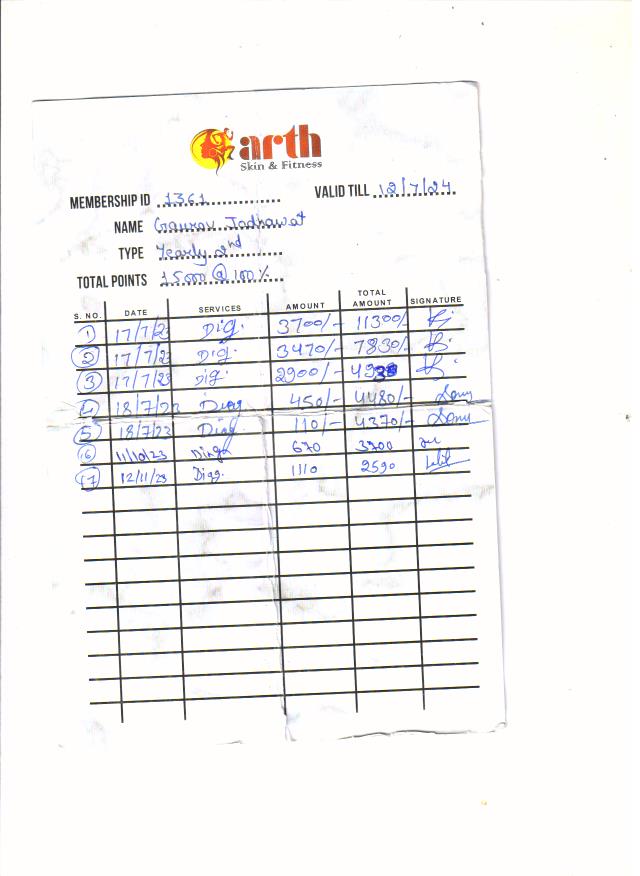 arth
Skin & Fitness
MEMBERSHIP ID 1361 VALID TILL 12/7/24
NAME Gaurav Jodhawat
TYPE Yearly 2nd
TOTAL POINTS 15000 @ 100%
S. NO. DATE SERVICES AMOUNT TOTAL AMOUNT SIGNATURE
1 17/7/23 Dig. 3700/- 11300/-
2 17/7/23 Dig. 3470/- 7830/-
3 17/7/23 Dig. 2900/- 4930
4 18/7/23 Diag 450/- 4480/-
5 18/7/23 Diag 110/- 4370/-
6 11/10/23 670 3700
7 12/11/23 Digg. 1110 2590